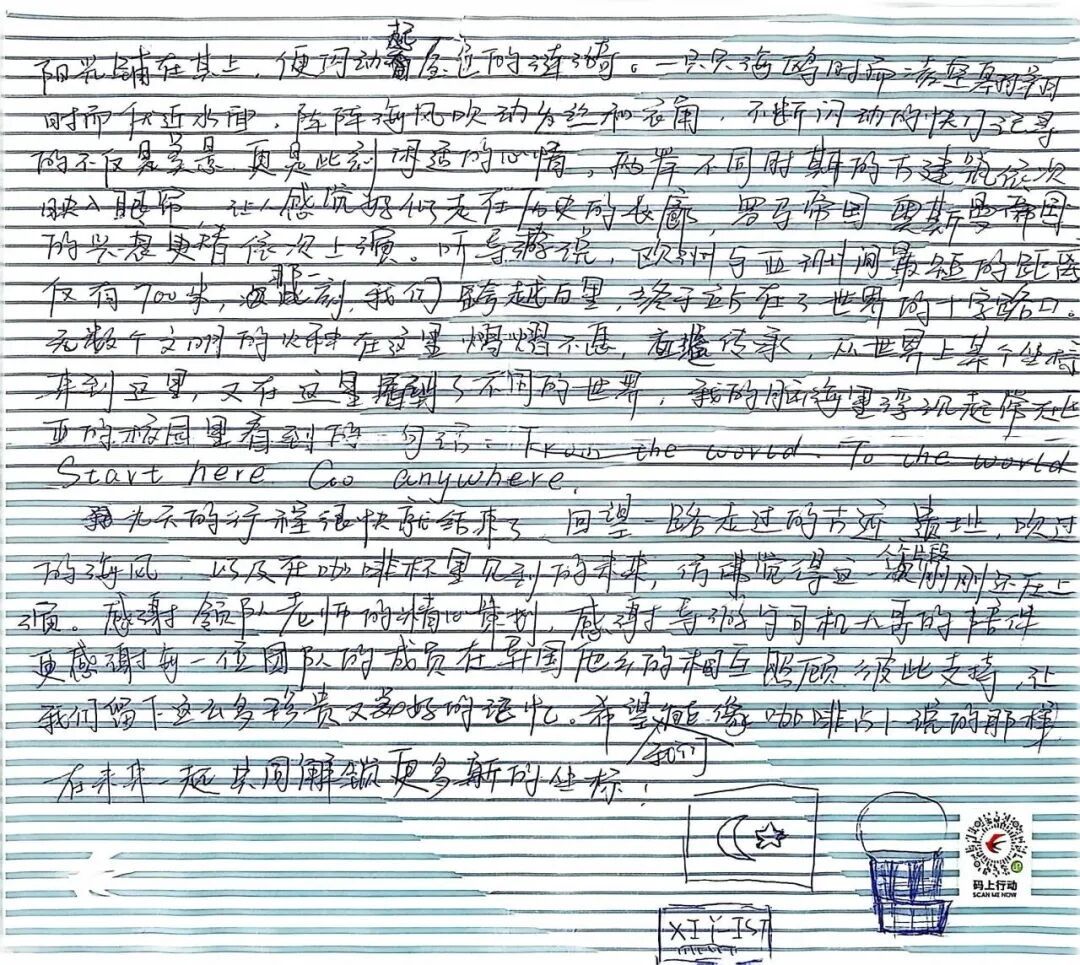 阳光铺在其上，便闪动起层层的涟漪。一只只海鸥时而凌空翱翔
时而我近水面，阵阵海风吹动发丝和衣角，不断闪动的快门记录
的不仅是美景，更是此刻闲适的心情，两岸不同时期的古建筑依次
映入眼帘，让人感觉好似走在历史的长廊，罗马帝国 奥斯曼帝国
的兴衰更替依次上演。听导游说，欧洲与亚洲间最短的距离
仅有700米，那一刻，我们跨越万里，终于站在了世界的十字路口。
无数个文明的火种在这里熠熠不息，传承，从世界上某个坐标
来到这里，又在这里看到了不同的世界，我的脑海里浮现起
亚的校园里看到的一句话：From the world. To the world
Start here. Go anywhere.
九天的行程很快就结束了，回望一路走过的古迹、遗址，吹过
的海风，以及在咖啡杯里见到的未来，仿佛觉得这一个个片段刚刚还在上
演。感谢领队老师的精心策划，感谢导游与司机大哥的陪伴
更感谢每一位团队的成员在异国他乡的相互照顾 彼此支持，让
我们留下这么多珍贵又美好的记忆。希望我们 像咖啡占卜说的那样
在未来一起共同解锁更多新的坐标！
码上行动
SCAN ME NOW
XIY-IST